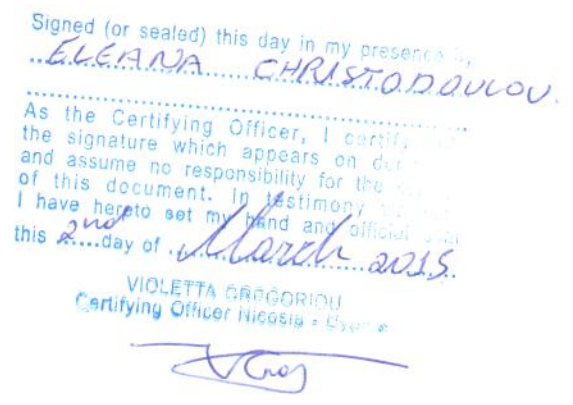 Signed (or sealed) this day in my presence
ELEANA CHRISTODOULOU
As the Certifying Officer, I certify
the signature which appears on
and assume no responsibility for the
of this document. In testimony
I have hereto set my hand and official
this 2nd day of March 2015.
VIOLETTA GREGORIOU
Certifying Officer Nicosia - Cyprus